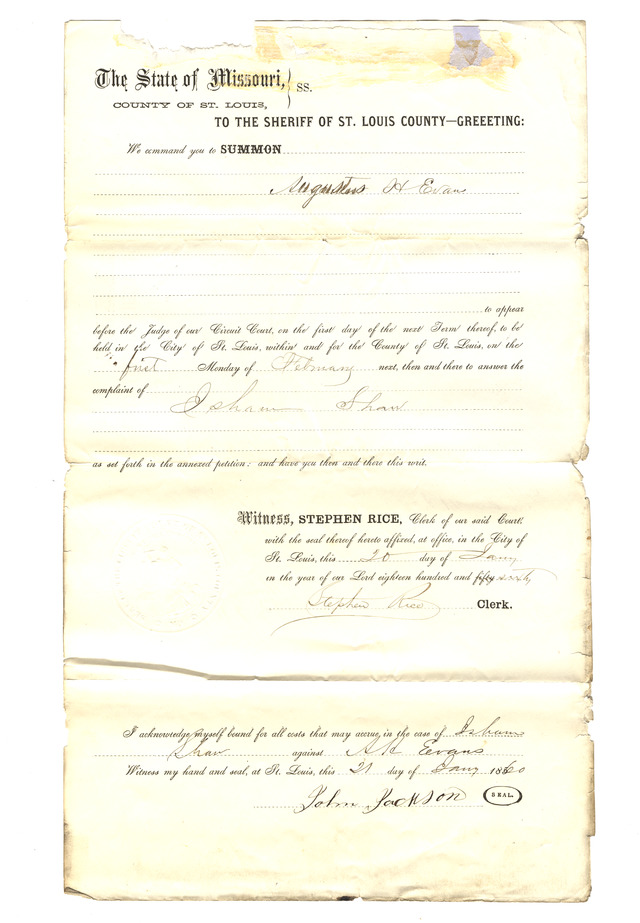 The State of Missouri, } SS.
COUNTY OF ST. LOUIS,
TO THE SHERIFF OF ST. LOUIS COUNTY—GREEETING:
We command you to SUMMON
Augustus H Evans
to appear
before the Judge of our Circuit Court, on the first day of the next Term thereof, to be
held in the City of St. Louis, within and for the County of St. Louis, on the
first Monday of February next, then and there to answer the
complaint of
Isham Shaw
as set forth in the annexed petition: and have you then and there this writ.
Witness, STEPHEN RICE, Clerk of our said Court
with the seal thereof hereto affixed, at office, in the City of
St. Louis, this 20 day of Jany
in the year of our Lord eighteen hundred and fifty sixty
Stephen Rice Clerk.
I acknowledge myself bound for all costs that may accrue, in the case of Isham
Shaw against AH Evans
Witness my hand and seal, at St. Louis, this 21 day of Jany 1860
John Jackson SEAL.